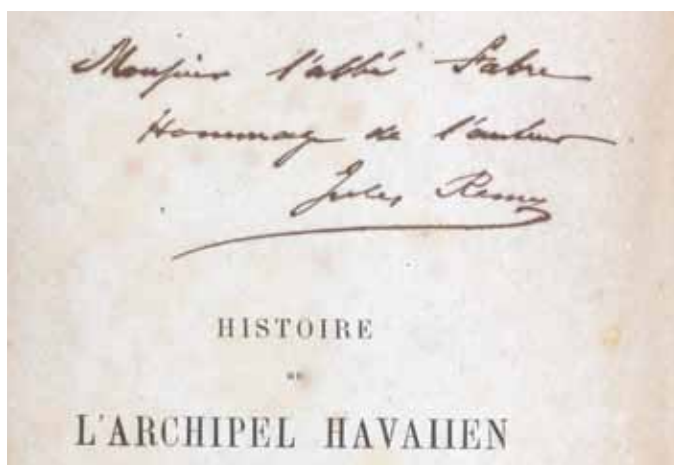 Monsieur l'abbé Fabre
Hommage de l'auteur
Jules Remy
HISTOIRE
DE
L'ARCHIPEL HAVAIIEN